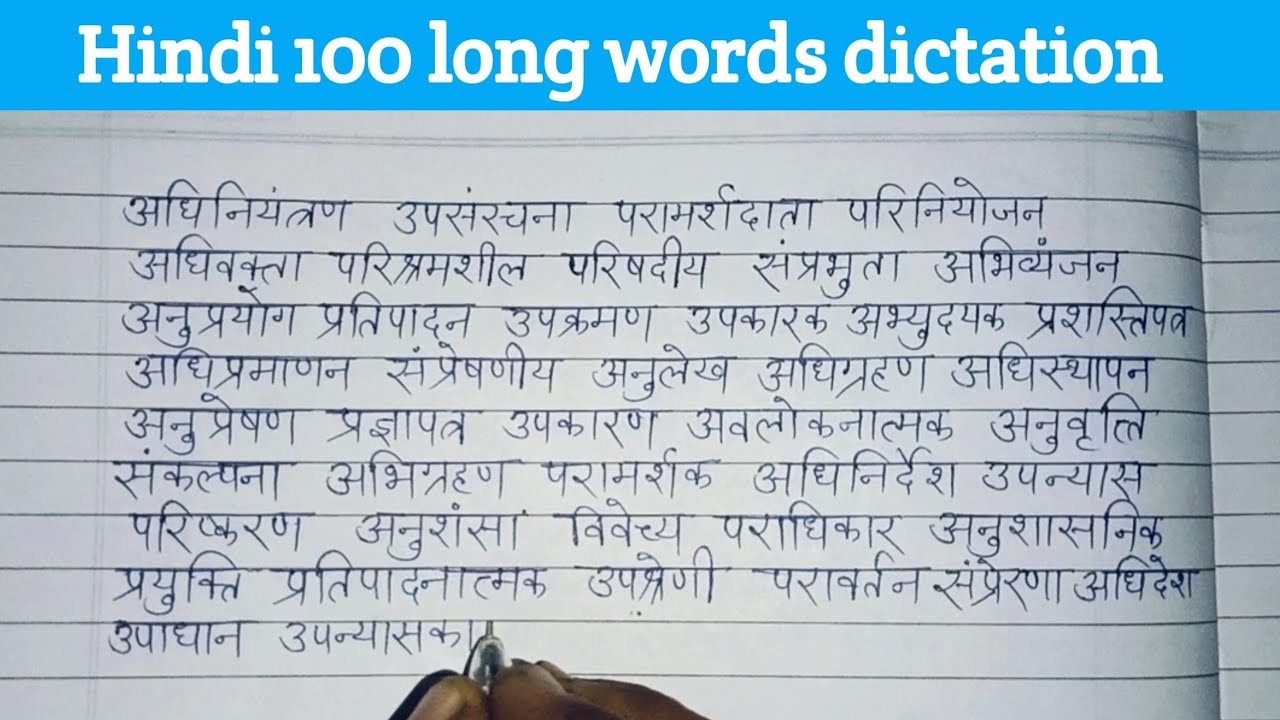 Hindi 100 long words dictation
अधिनियंत्रण उपसंरचना परामर्शदाता परिनियोजन
अधिवक्ता परिश्रमशील परिषदीय संप्रभुता अभिव्यंजन
अनुप्रयोग प्रतिपादन उपक्रमण उपकारक अभ्युदयक प्रशस्तिपत्र
अधिप्रमाणन संप्रेषणीय अनुलेख अधिग्रहण अधिस्थापन
अनुप्रेषण प्रज्ञापत्र उपकारण अवलोकनात्मक अनुवृत्ति
संकल्पना अभिग्रहण परामर्शक अधिनिर्देश उपन्यास
परिष्करण अनुशंसा विवेच्य पराधिकार अनुशासनिक
प्रयुक्ति प्रतिपादनात्मक उपश्रेणी परावर्तन संप्रेरणा अधिदेश
उपाधान उपन्यासका